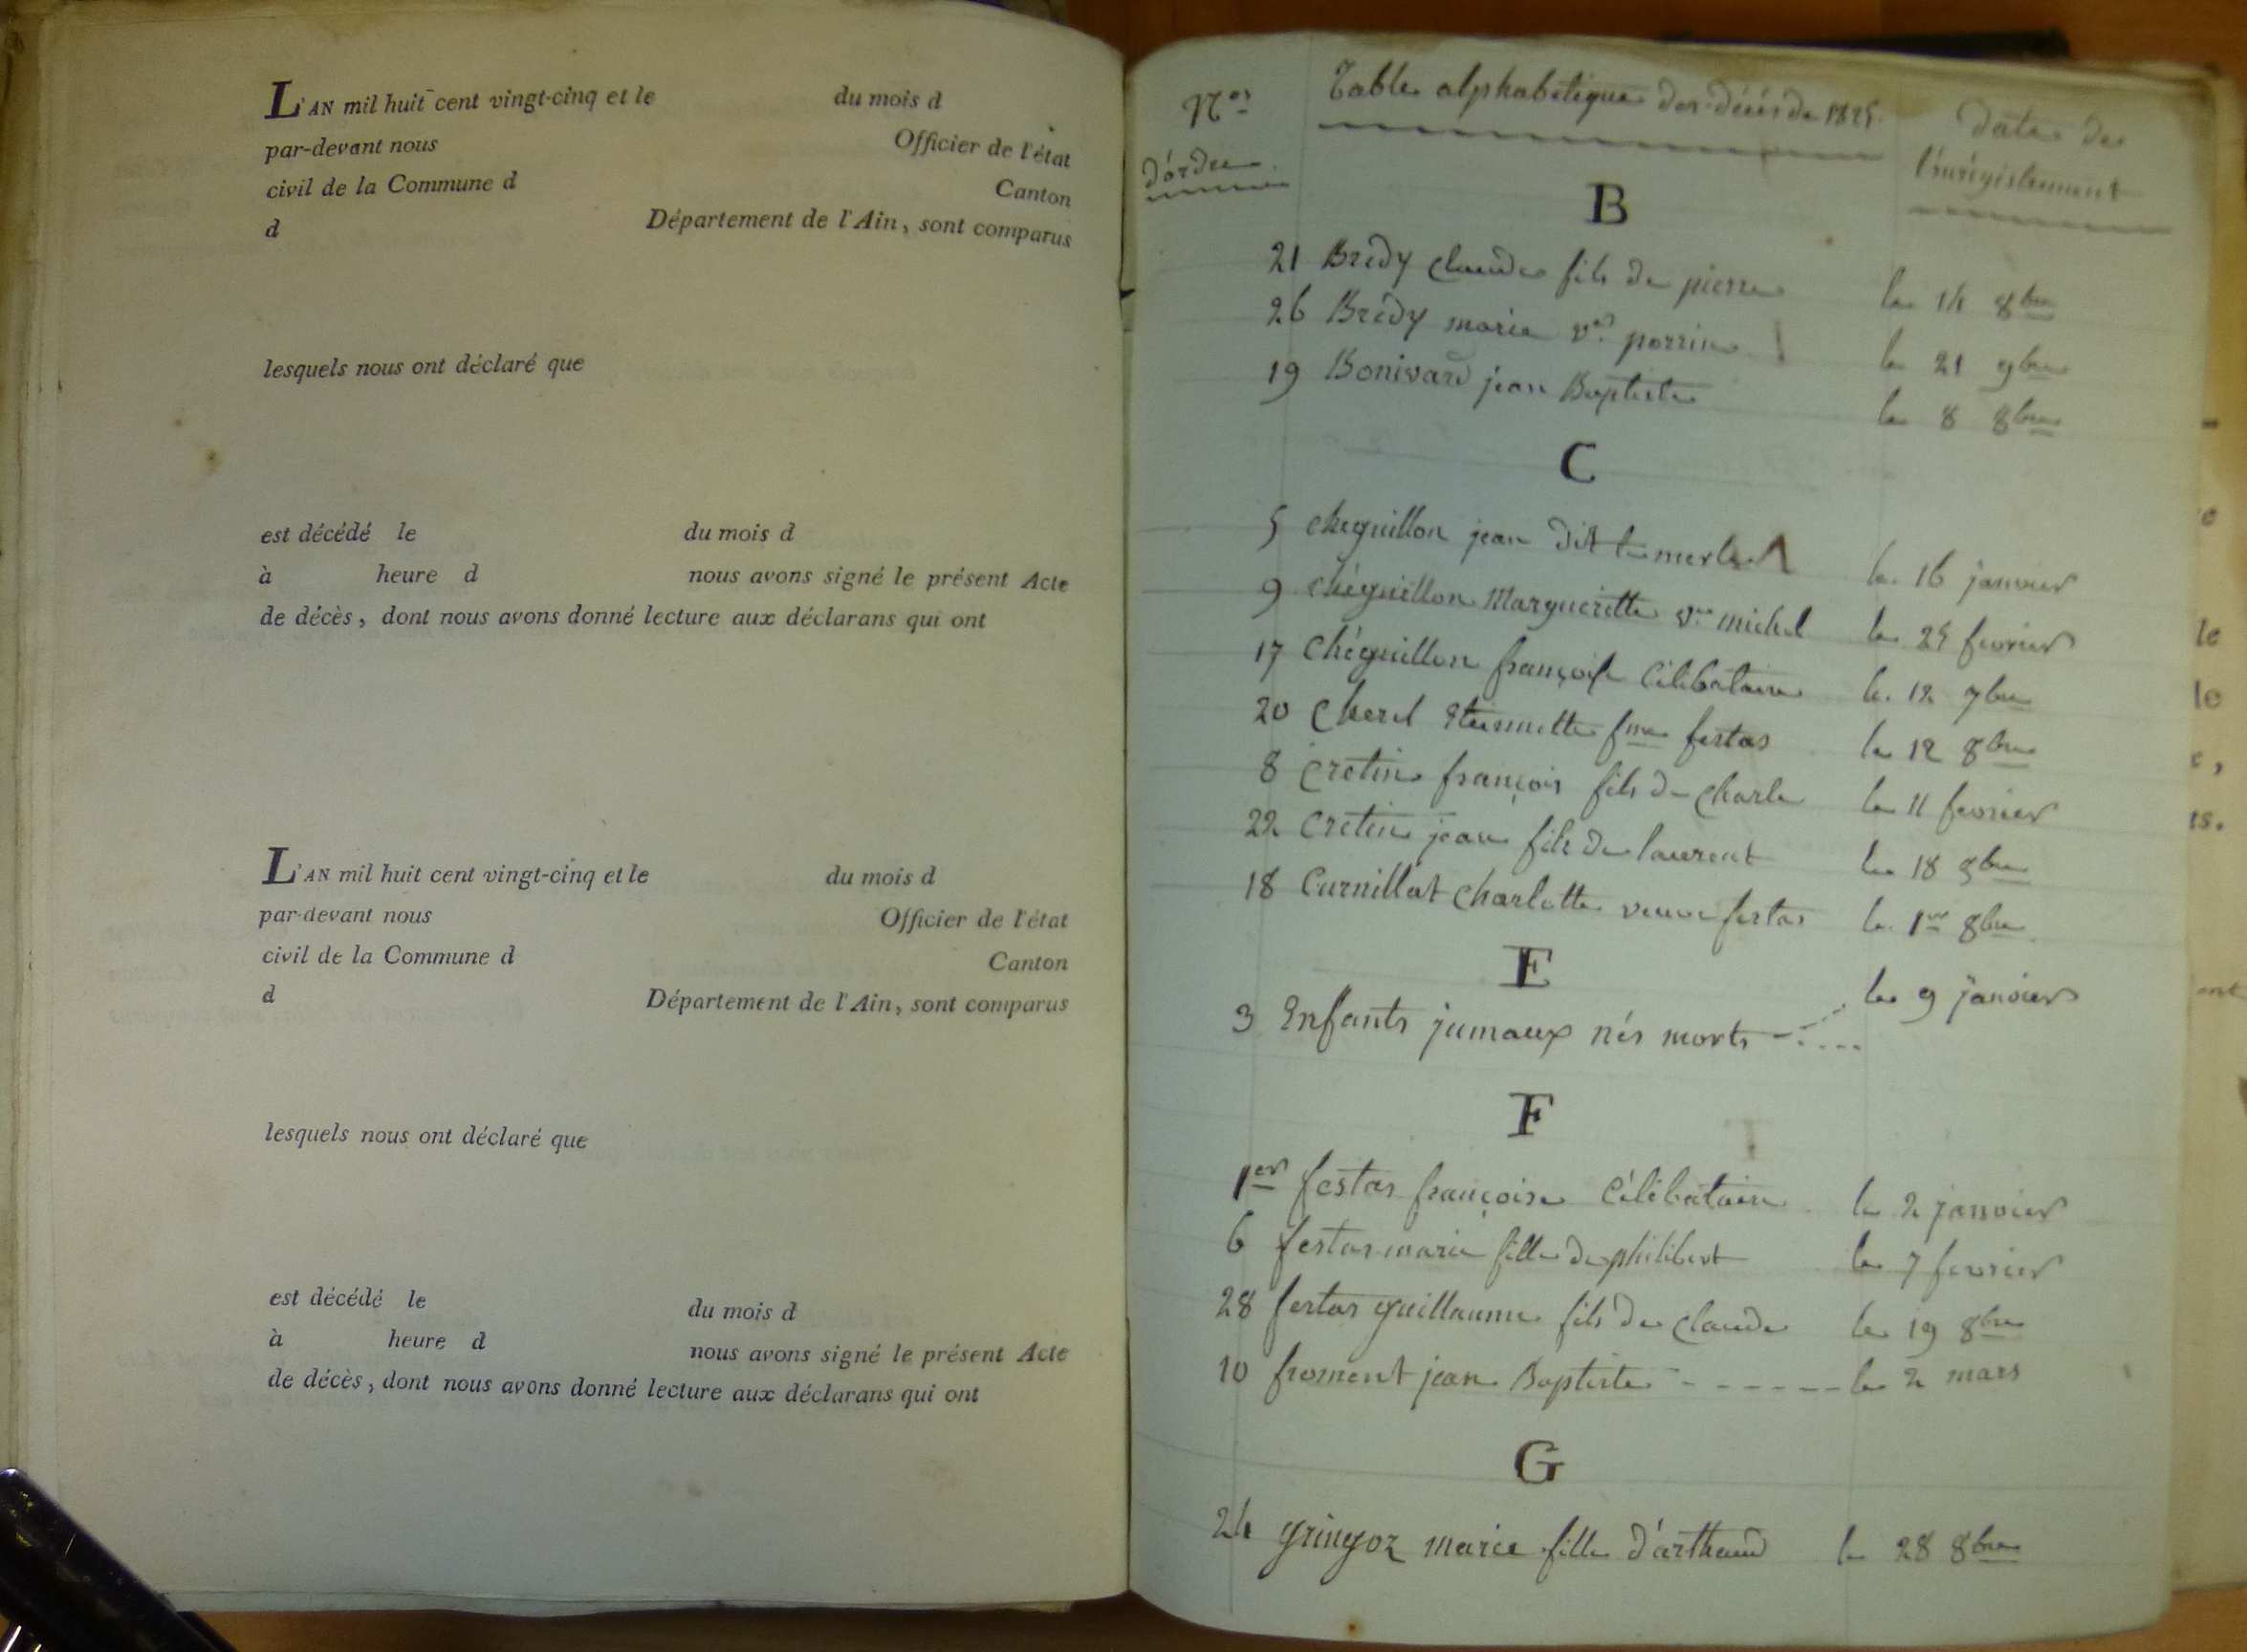 L'AN mil huit cent vingt-cinq et le du mois d
par-devant nous Officier de l'état
civil de la Commune d Canton
d Département de l'Ain, sont comparus
lesquels nous ont déclaré que
est décédé le du mois d
à heure d nous avons signé le présent Acte
de décès, dont nous avons donné lecture aux déclarans qui ont
L'AN mil huit cent vingt-cinq et le du mois d
par-devant nous Officier de l'état
civil de la Commune d Canton
d Département de l'Ain, sont comparus
lesquels nous ont déclaré que
est décédé le du mois d
à heure d nous avons signé le présent Acte
de décès, dont nous avons donné lecture aux déclarans qui ont
Nos d'ordre
Table alphabetique des décés de 1825.
date de l'enregistrement
B
21 Brédy claude fils de pierre le 14 8bre
26 Brédy marie ve perrin le 21 9bre
19 Bonivard jean Baptiste le 8 8bre
C
5 cheguillon jean dit le merle le 16 janvier
9 chéguillon Margueritte ve michel le 25 fevrier
17 chéguillon françois célibataire le 12 7bre
20 cherel Etiennette fme festas le 12 8bre
8 cretin françois fils de charle le 11 fevrier
22 cretin jean fils de laurent le 18 8bre
18 Curnillat charlotte veuve festas le 1er 8bre
E
3 Enfants jumaux nés morts le 9 janvier
F
1er festas françoise célibataire le 2 janvier
6 festas marie fille de philibert le 7 fevrier
28 festas guillaume fils de claude le 19 8bre
10 froment jean Baptiste le 2 mars
G
24 gringoz marie fille d'arthaud le 28 8bre